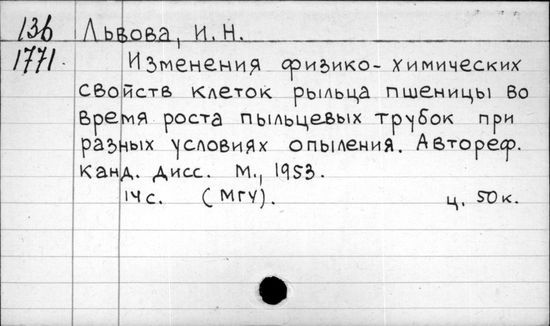 13б Львова, И. Н.
1771. Изменения физико-химических
свойств клеток рыльца пшеницы во
время роста пыльцевых трубок при
разных условиях опыления. Автореф.
канд. дисс. М., 1953.
14 с. (МГУ). ц. 50 к.